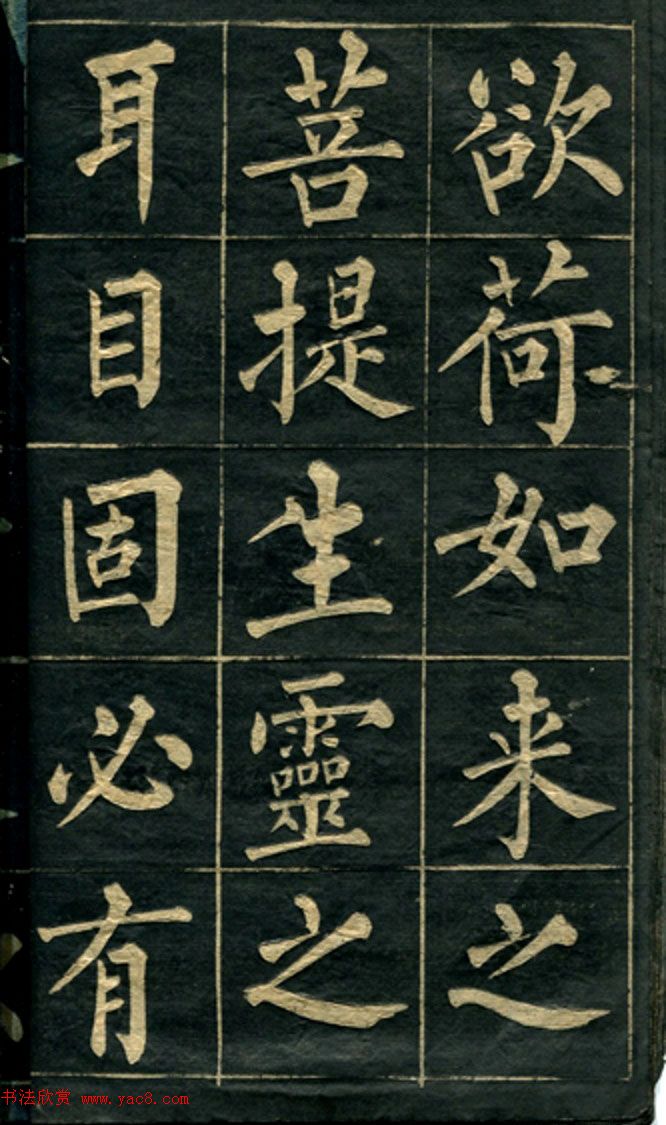 欲荷如来之
菩提生靈之
耳目固必有
书法欣赏 www.yac8.com